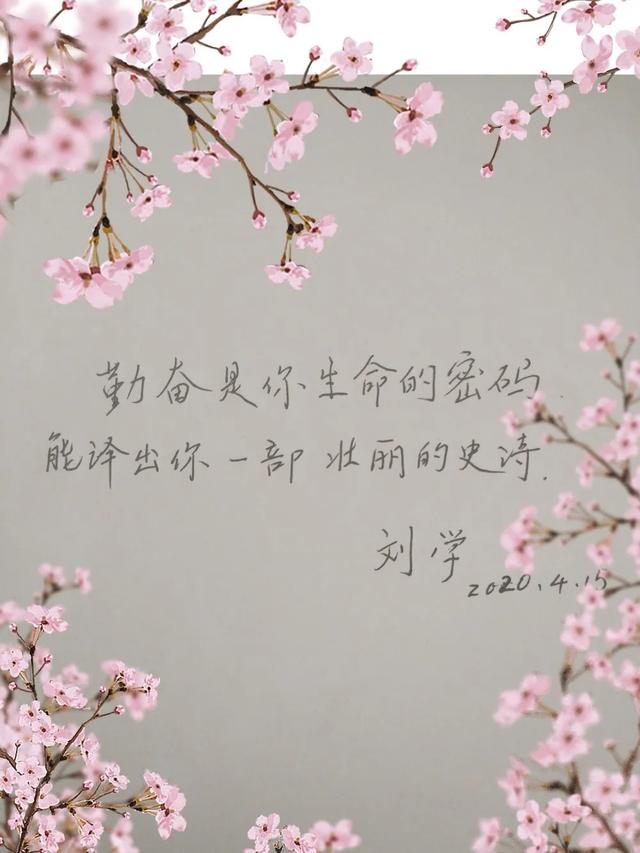 勤奋是你生命的密码.
能译出你一部壮丽的史诗.
刘学
2020.4.15